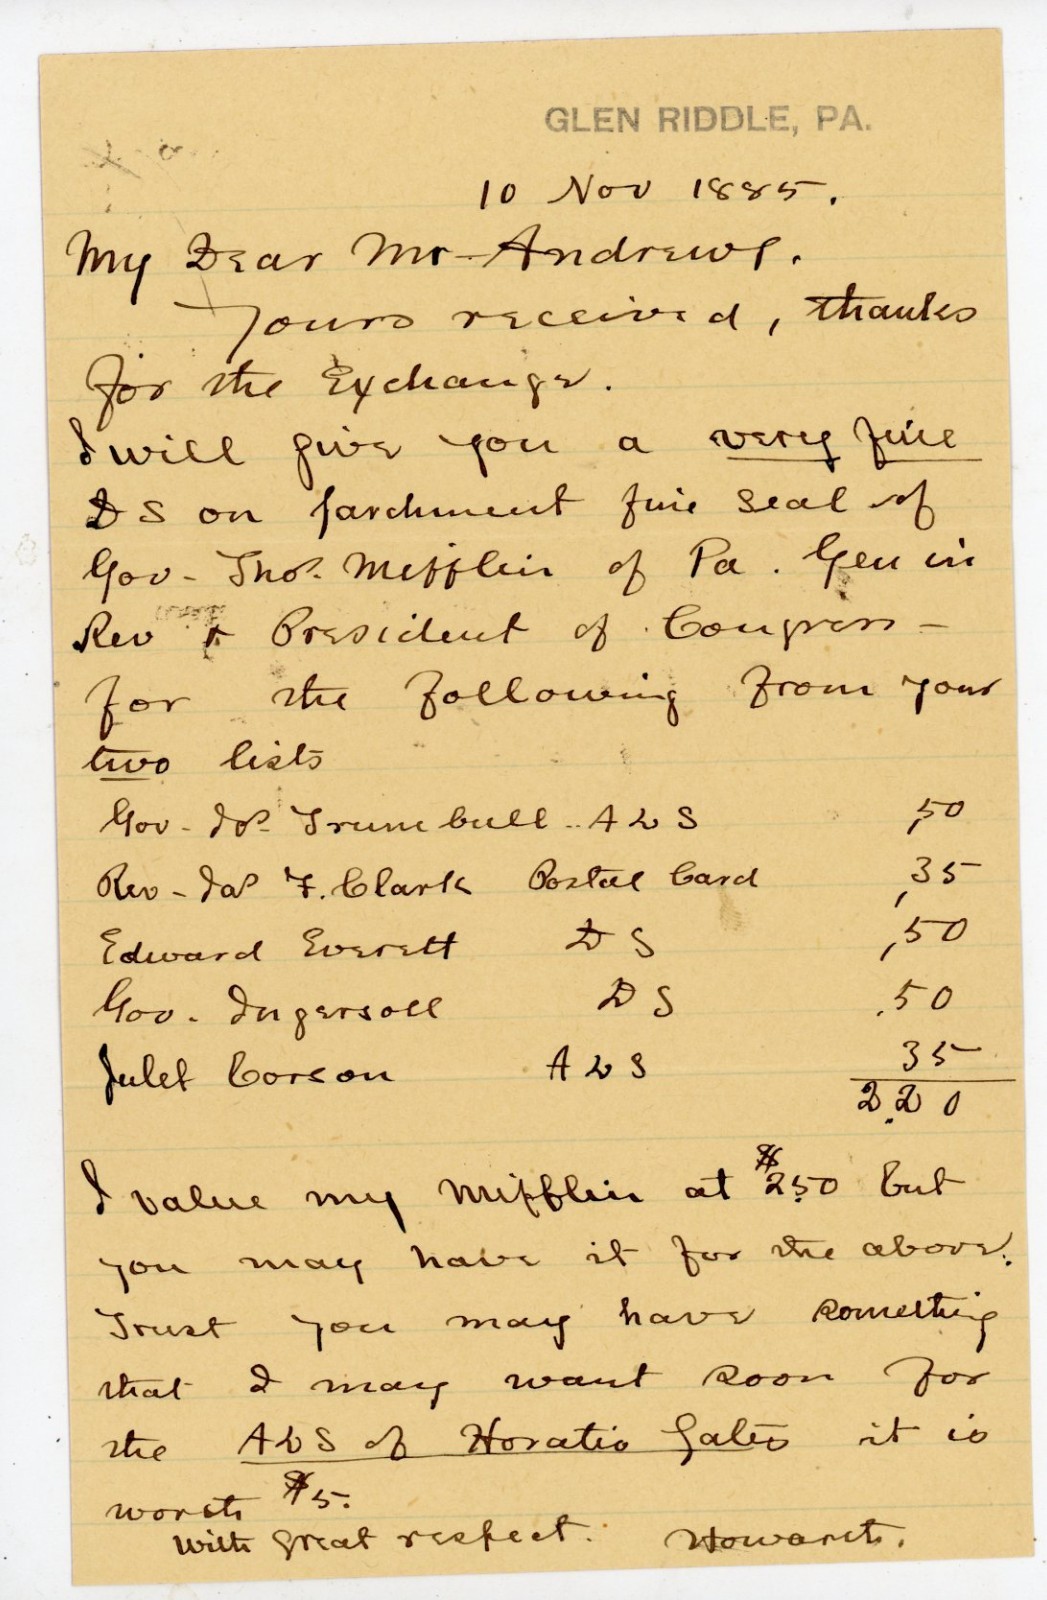 GLEN RIDDLE, PA.
10 Nov 1885.
My Dear Mr Andrews.
Yours received, thanks
for the Exchange.
I will give you a very fine
DS on parchment fine seal of
Gov - Thos. Mifflin of Pa. Gen in
Rev & President of Congress -
for the following from your
two lists
Gov - Jos. Trumbull .. ALS ,50
Rev - Jas F. Clark Postal Card ,35
Edward Everett DS ,50
Gov. Ingersoll DS .50
Julet Corson ALS 35
2.20
I value my Mifflin at $2.50 but
you may have it for the above.
Trust you may have something
that I may want soon for
the ALS of Horatio Gates it is
worth $5.
With great respect. Howarth.